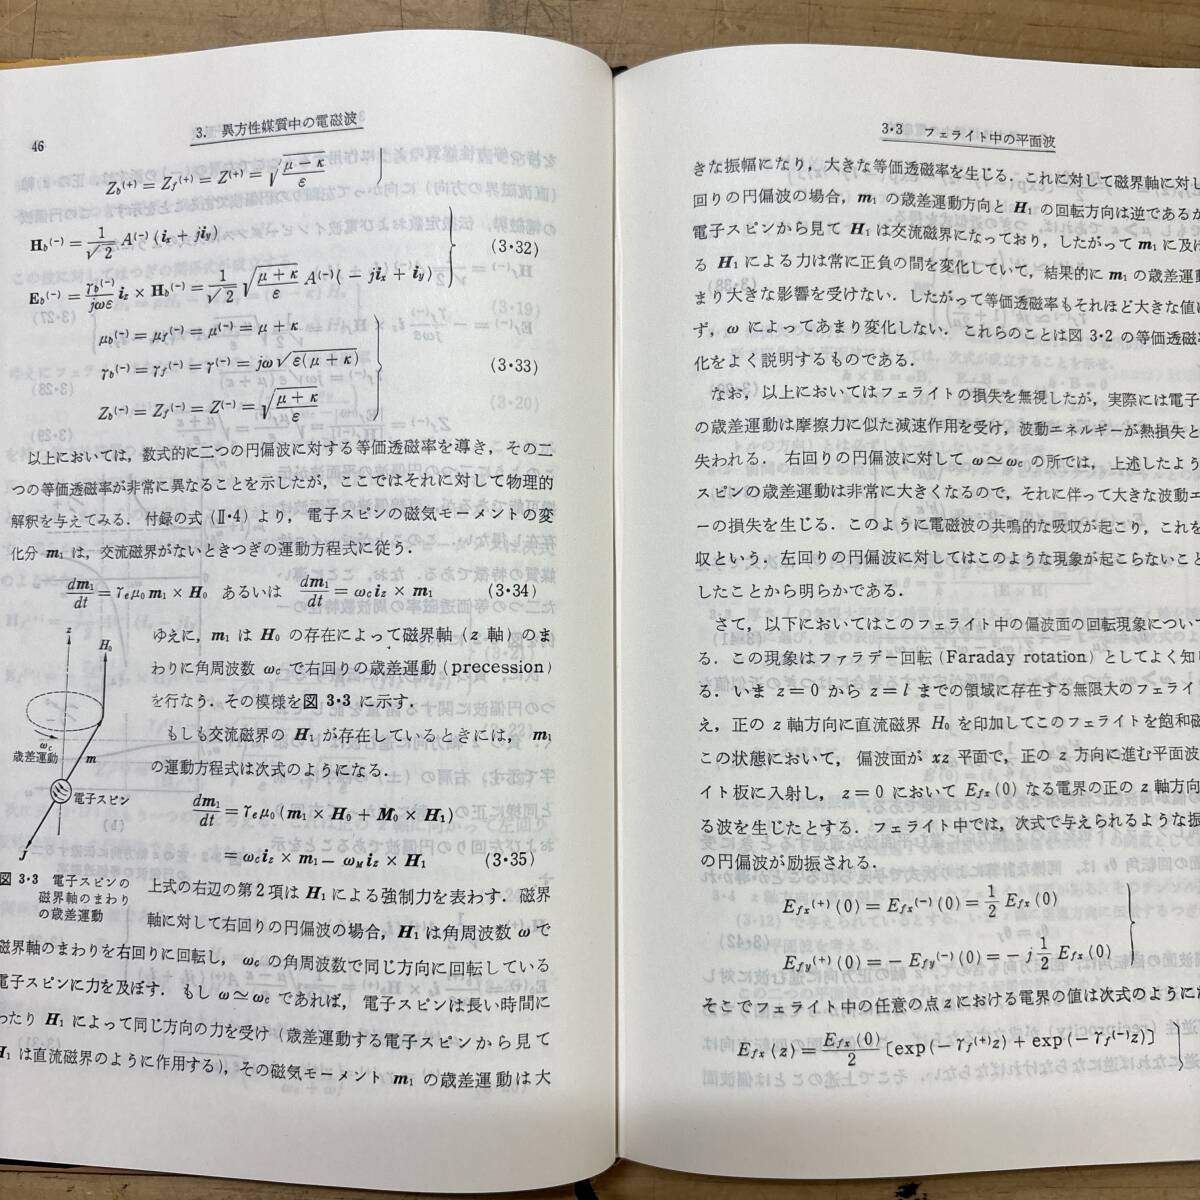 46
3. 異方性媒質中の電磁波
Z_b^(+) = Z_f^(+) = Z^(+) = √((μ−κ)/ε)
H_b^(-) = (1/√2) A^(-) (i_x + j i_y)
(3・32)
E_b^(-) = (γ_b^(-)/jωε) i_z × H_b^(-) = (1/√2) √((μ+κ)/ε) A^(-) (− j i_x + i_y)
μ_b^(-) = μ_f^(-) = μ^(-) = μ + κ
γ_b^(-) = γ_f^(-) = γ^(-) = jω√(ε(μ+κ))
(3・33)
Z_b^(-) = Z_f^(-) = Z^(-) = √((μ+κ)/ε)
以上においては，数式的に二つの円偏波に対する等価透磁率を導き，その二
つの等価透磁率が非常に異なることを示したが，ここではそれに対して物理的
解釈を与えてみる．付録の式 (Ⅱ・4) より，電子スピンの磁気モーメントの変
化分 m₁ は，交流磁界がないときつぎの運動方程式に従う．
dm₁/dt = γ_e μ₀ m₁ × H₀ あるいは dm₁/dt = ω_c i_z × m₁ (3・34)
ゆえに，m₁ は H₀ の存在によって磁界軸（z 軸）のま
わりに角周波数 ω_c で右回りの歳差運動 (precession)
を行なう．その模様を図 3・3 に示す．
もしも交流磁界の H₁ が存在しているときには，m₁
の運動方程式は次式のようになる．
dm₁/dt = γ_e μ₀ (m₁ × H₀ + M₀ × H₁)
= ω_c i_z × m₁ − ω_M i_z × H₁ (3・35)
z
H₀
ω_c
歳差運動
m
電子スピン
J
図 3・3 電子スピンの
磁界軸のまわり
の歳差運動
上式の右辺の第2項は H₁ による強制力を表わす．磁界
軸に対して右回りの円偏波の場合，H₁ は角周波数 ω で
磁界軸のまわりを右回りに回転し，ω_c の角周波数で同じ方向に回転している
電子スピンに力を及ぼす．もし ω≃ω_c であれば，電子スピンは長い時間に
わたり H₁ によって同じ方向の力を受け（歳差運動する電子スピンから見て
H₁ は直流磁界のように作用する），その磁気モーメント m₁ の歳差運動は大
3・3 フェライト中の平面波
きな振幅になり，大きな等価透磁率を生じる．これに対して磁界軸に対し
回りの円偏波の場合，m₁ の歳差運動方向と H₁ の回転方向は逆であるか
電子スピンから見て H₁ は交流磁界になっており，したがって m₁ に及
る H₁ による力は常に正負の間を変化していて，結果的に m₁ の歳差運動
まり大きな影響を受けない．したがって等価透磁率もそれほど大きな値
ず，ω によってあまり変化しない．これらのことは図 3・2 の等価透磁率
化をよく説明するものである．
なお，以上においてはフェライトの損失を無視したが，実際には電子
の歳差運動は摩擦力に似た減速作用を受け，波動エネルギーが熱損失と
失われる．右回りの円偏波に対して ω≃ω_c の所では，上述したよう
スピンの歳差運動は非常に大きくなるので，それに伴って大きな波動エ
ーの損失を生じる．このように電磁波の共鳴的な吸収が起こり，これを
収という．左回りの円偏波に対してはこのような現象が起こらないこと
したことから明らかである．
さて，以下においてはこのフェライト中の偏波面の回転現象につい
る．この現象はファラデー回転 (Faraday rotation) としてよく知
る．いま z=0 から z=l までの領域に存在する無限大のフェライ
え，正の z 軸方向に直流磁界 H₀ を印加してこのフェライトを飽和磁
この状態において，偏波面が xz 平面で，正の z 方向に進む平面波
イト板に入射し，z=0 において E_fx(0) なる電界の正の z 軸方向
る波を生じたとする．フェライト中では，次式で与えられるような振
の円偏波が励振される．
E_fx^(+)(0) = E_fx^(-)(0) = (1/2) E_fx(0)
E_fy^(+)(0) = − E_fy^(-)(0) = − j (1/2) E_fx(0)
そこでフェライト中の任意の点 z における電界の値は次式のように
E_fx(z) = (E_fx(0)/2) [exp(−γ_f^(+) z) + exp(−γ_f^(-) z)]